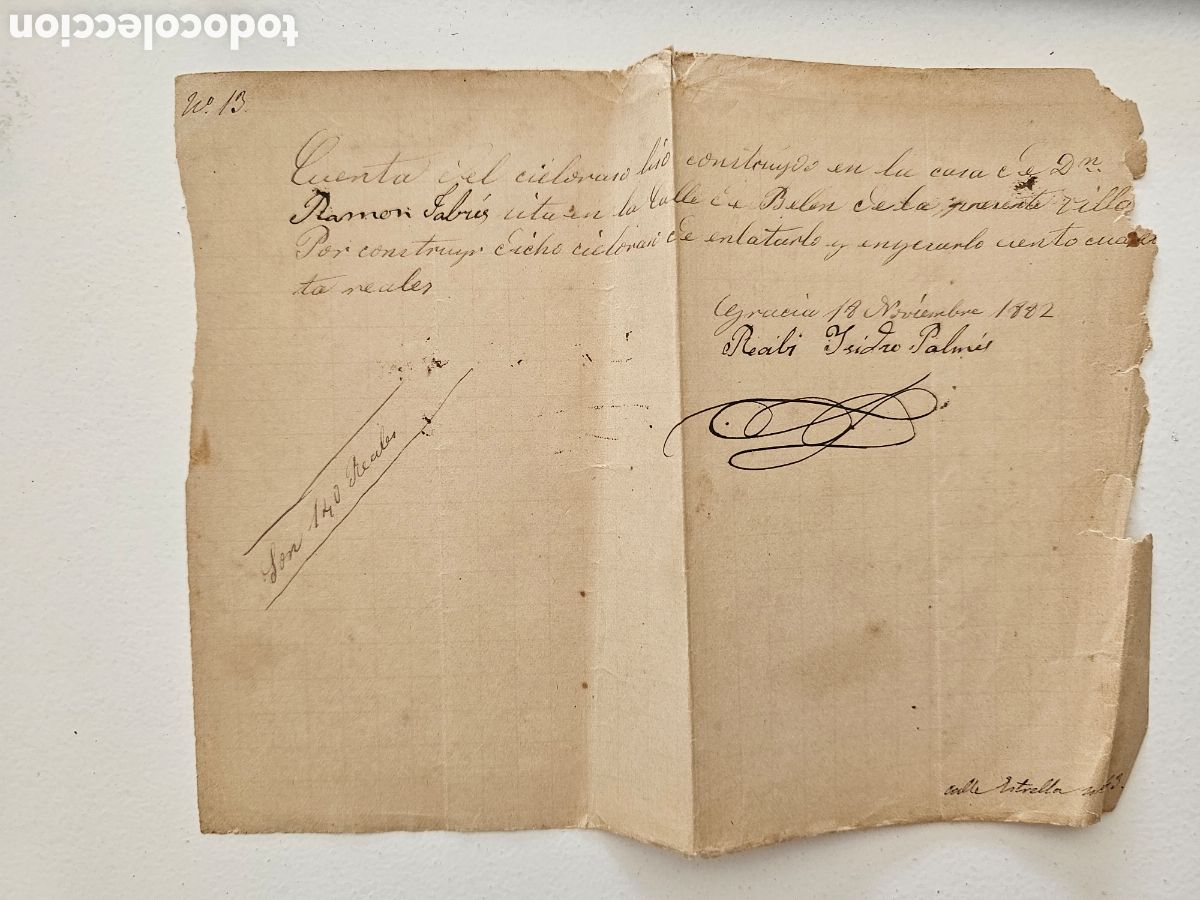 todocoleccion
Nº. 13.
Cuenta del cieloraso liso construydo en la casa de Dn.
Ramon Fabrés sita en la Calle de Belen de la presente Villa
Por construyr dicho cieloraso de enlatarlo y enyesarlo ciento cuaren
ta reales
Gracia 18 Noviembre 1882
Recibi Isidro Palmés
Son 140 Reales
calle Estrella 13.